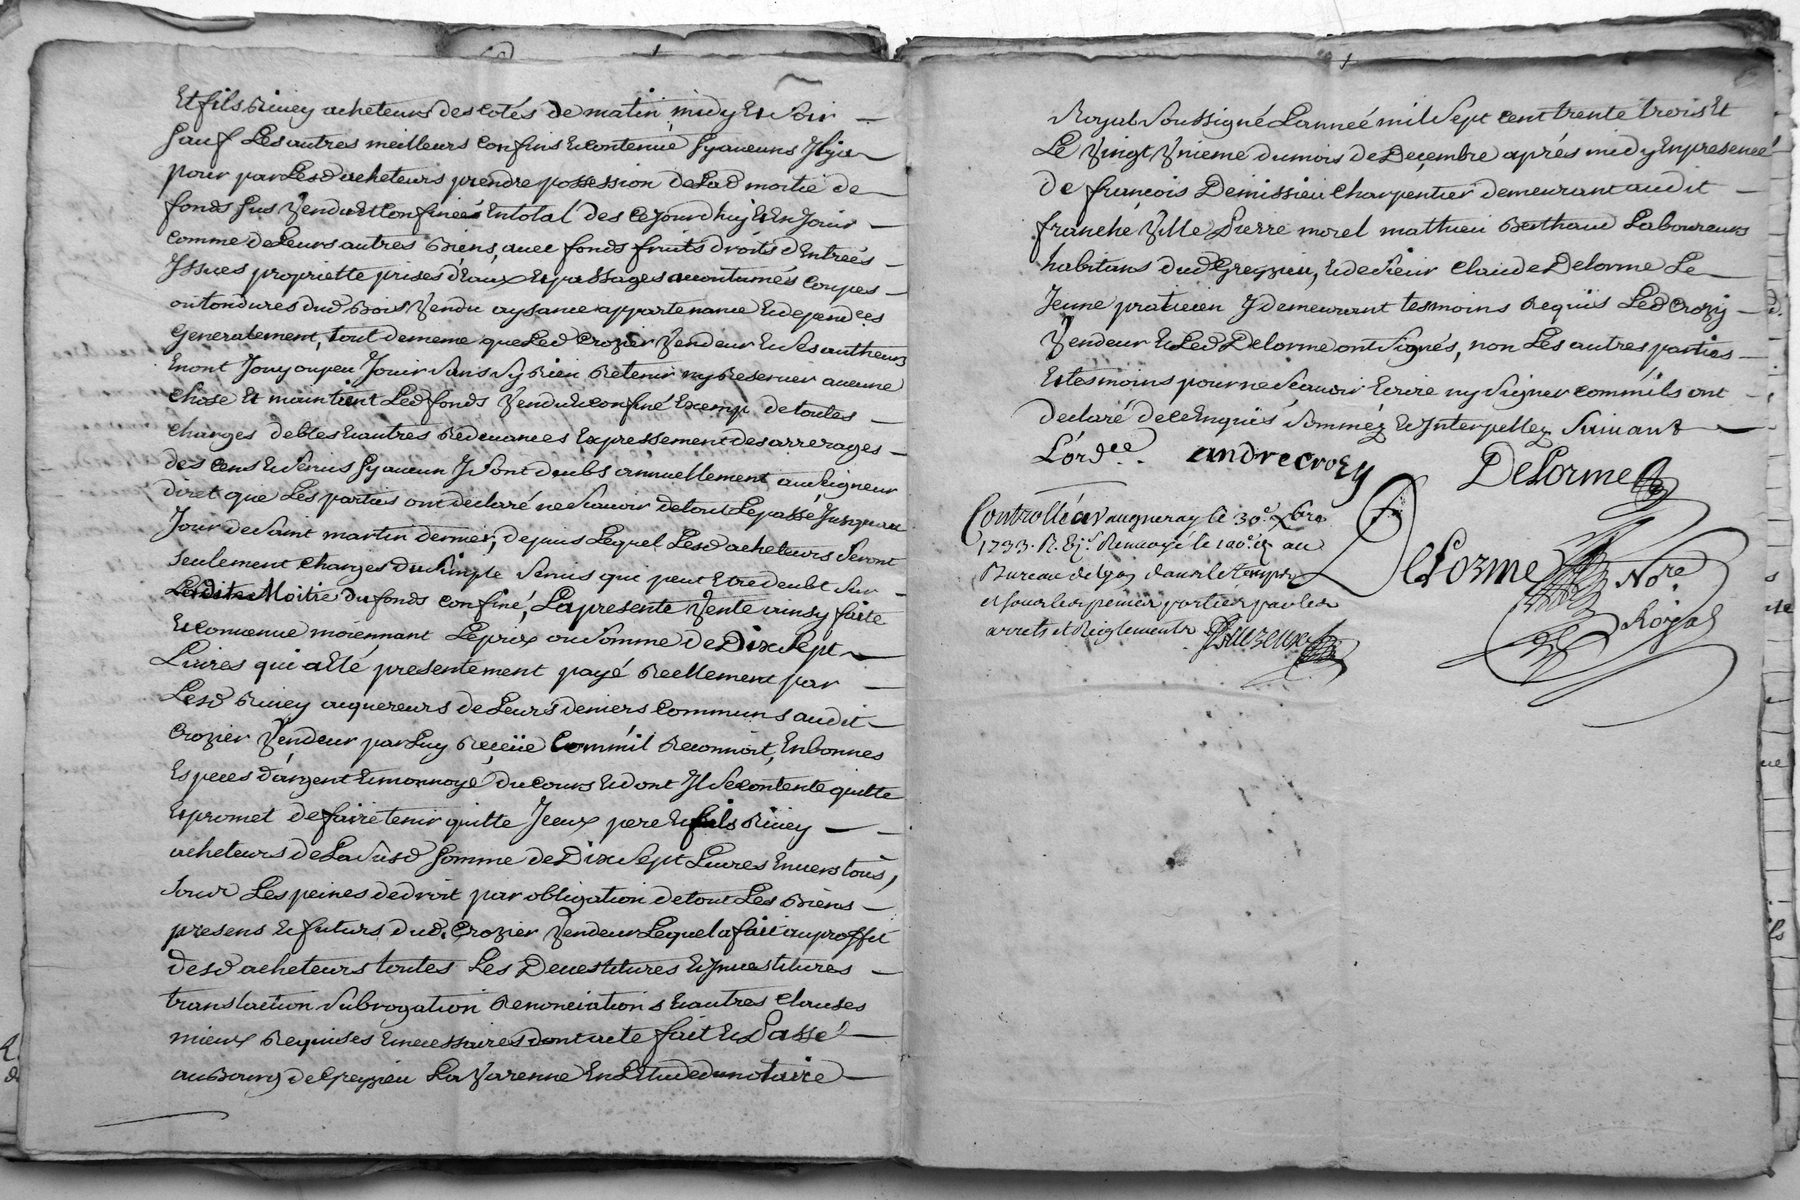 Et fils Riuey acheteurs des cotés de matin midy Et Soir
Sauf Les autres meilleurs confins Et contenüe sy aucuns Il y a
pour par Lesd acheteurs prendre possession de Lad moitié de
fonds sus Vendu Et Confinéé En total des Ce jourdhuy Et En Jouir
comme de Leurs autres Biens, auec fonds fruits droits d'Entreés
Issues proprietté prises d'Eaux Et passages acoutumés coupes
ou tondures dud Bois Vendu aysance appartenance Et dependces
generalement, tout de meme que Led Crozier Vendeur Et Ses autheurs
En ont Jouy ou peu Jouir Sans Sy Rien Retenir ny Reseruer aucune
chose Et maintient Led fonds Vendu Et confiné Exemp de toutes
charges debtes Et autres Redeuances Expressement des arrerages
des cens Et Seruis Sy aucun Il Sont deubs annuellement au Seigneur
diret que Les parties ont declaré ne Scauoir de tout Le passé Jusqu'au
Jour de Saint martin dernier, depuis Lequel Lesd acheteurs Seront
seulement chargés du Simple Seruis qui peut Etre deubt Sur
Ladite Moitié du fonds confiné, La presente Vente ainsy faite
Et conuenue moiennant Le prix ou Somme de Dix Sept
Liures qui a Eté presentement payé Reellement par
Lesd Riuey aquereurs de Leurs deniers Communs audit
Crozier Vendeur par Luy Receüe Comm'il Reconnoit, En bonnes
Especes d'argent Et monnoyé du cours Et dont Il Se contente quitte
Et promet de faire tenir quitte Iceux pere Et fils Riuey
acheteurs de La Susd Somme de Dix Sept Liures Enuers tous,
Sous Les peines de droit par obligation de tout Les Biens
presens Et futurs dud. Crozier Vendeur Lequel a fait au proffit
desd acheteurs toutes Les Deuestitures Et Inuestitures
translaction Subrogation Renonciations Et autres Clauses
mieux Requises Et necessaires dont acte fait Et Passé
au Bourg de Greyzieu La Varenne En L'Etude du notaire
Royal Soussigné L'anneé mil Sept cent trente trois Et
Le Vingt Vnieme du mois de Decembre aprés midy En presence
de françois Demissieu charpentier demeurant audit
franche Ville Pierre morel mathieu Berthaud Laboureurs
habitans dud Greyzieu, Et de Sieur Claude Delorme Le
Jeune praticien Y demeurant tesmoins Requis Led Crozy
Vendeur Et Led Delorme ont Signés, non Les autres parties
Et tesmoins pour ne Scauoir Ecrire ny Signer comm'ils ont
declaré de ce Enquis Sommez Et Interpellez Suiuant
L'ordce. andre crozy Delorme
Controllé à Vaugneray le 30e. Xbre
1733. R. Renuoyé le au
Bureau de Lyon dans le temps
et sous les peines portées par les
arrets et Reglements
Delorme Nore
Royal